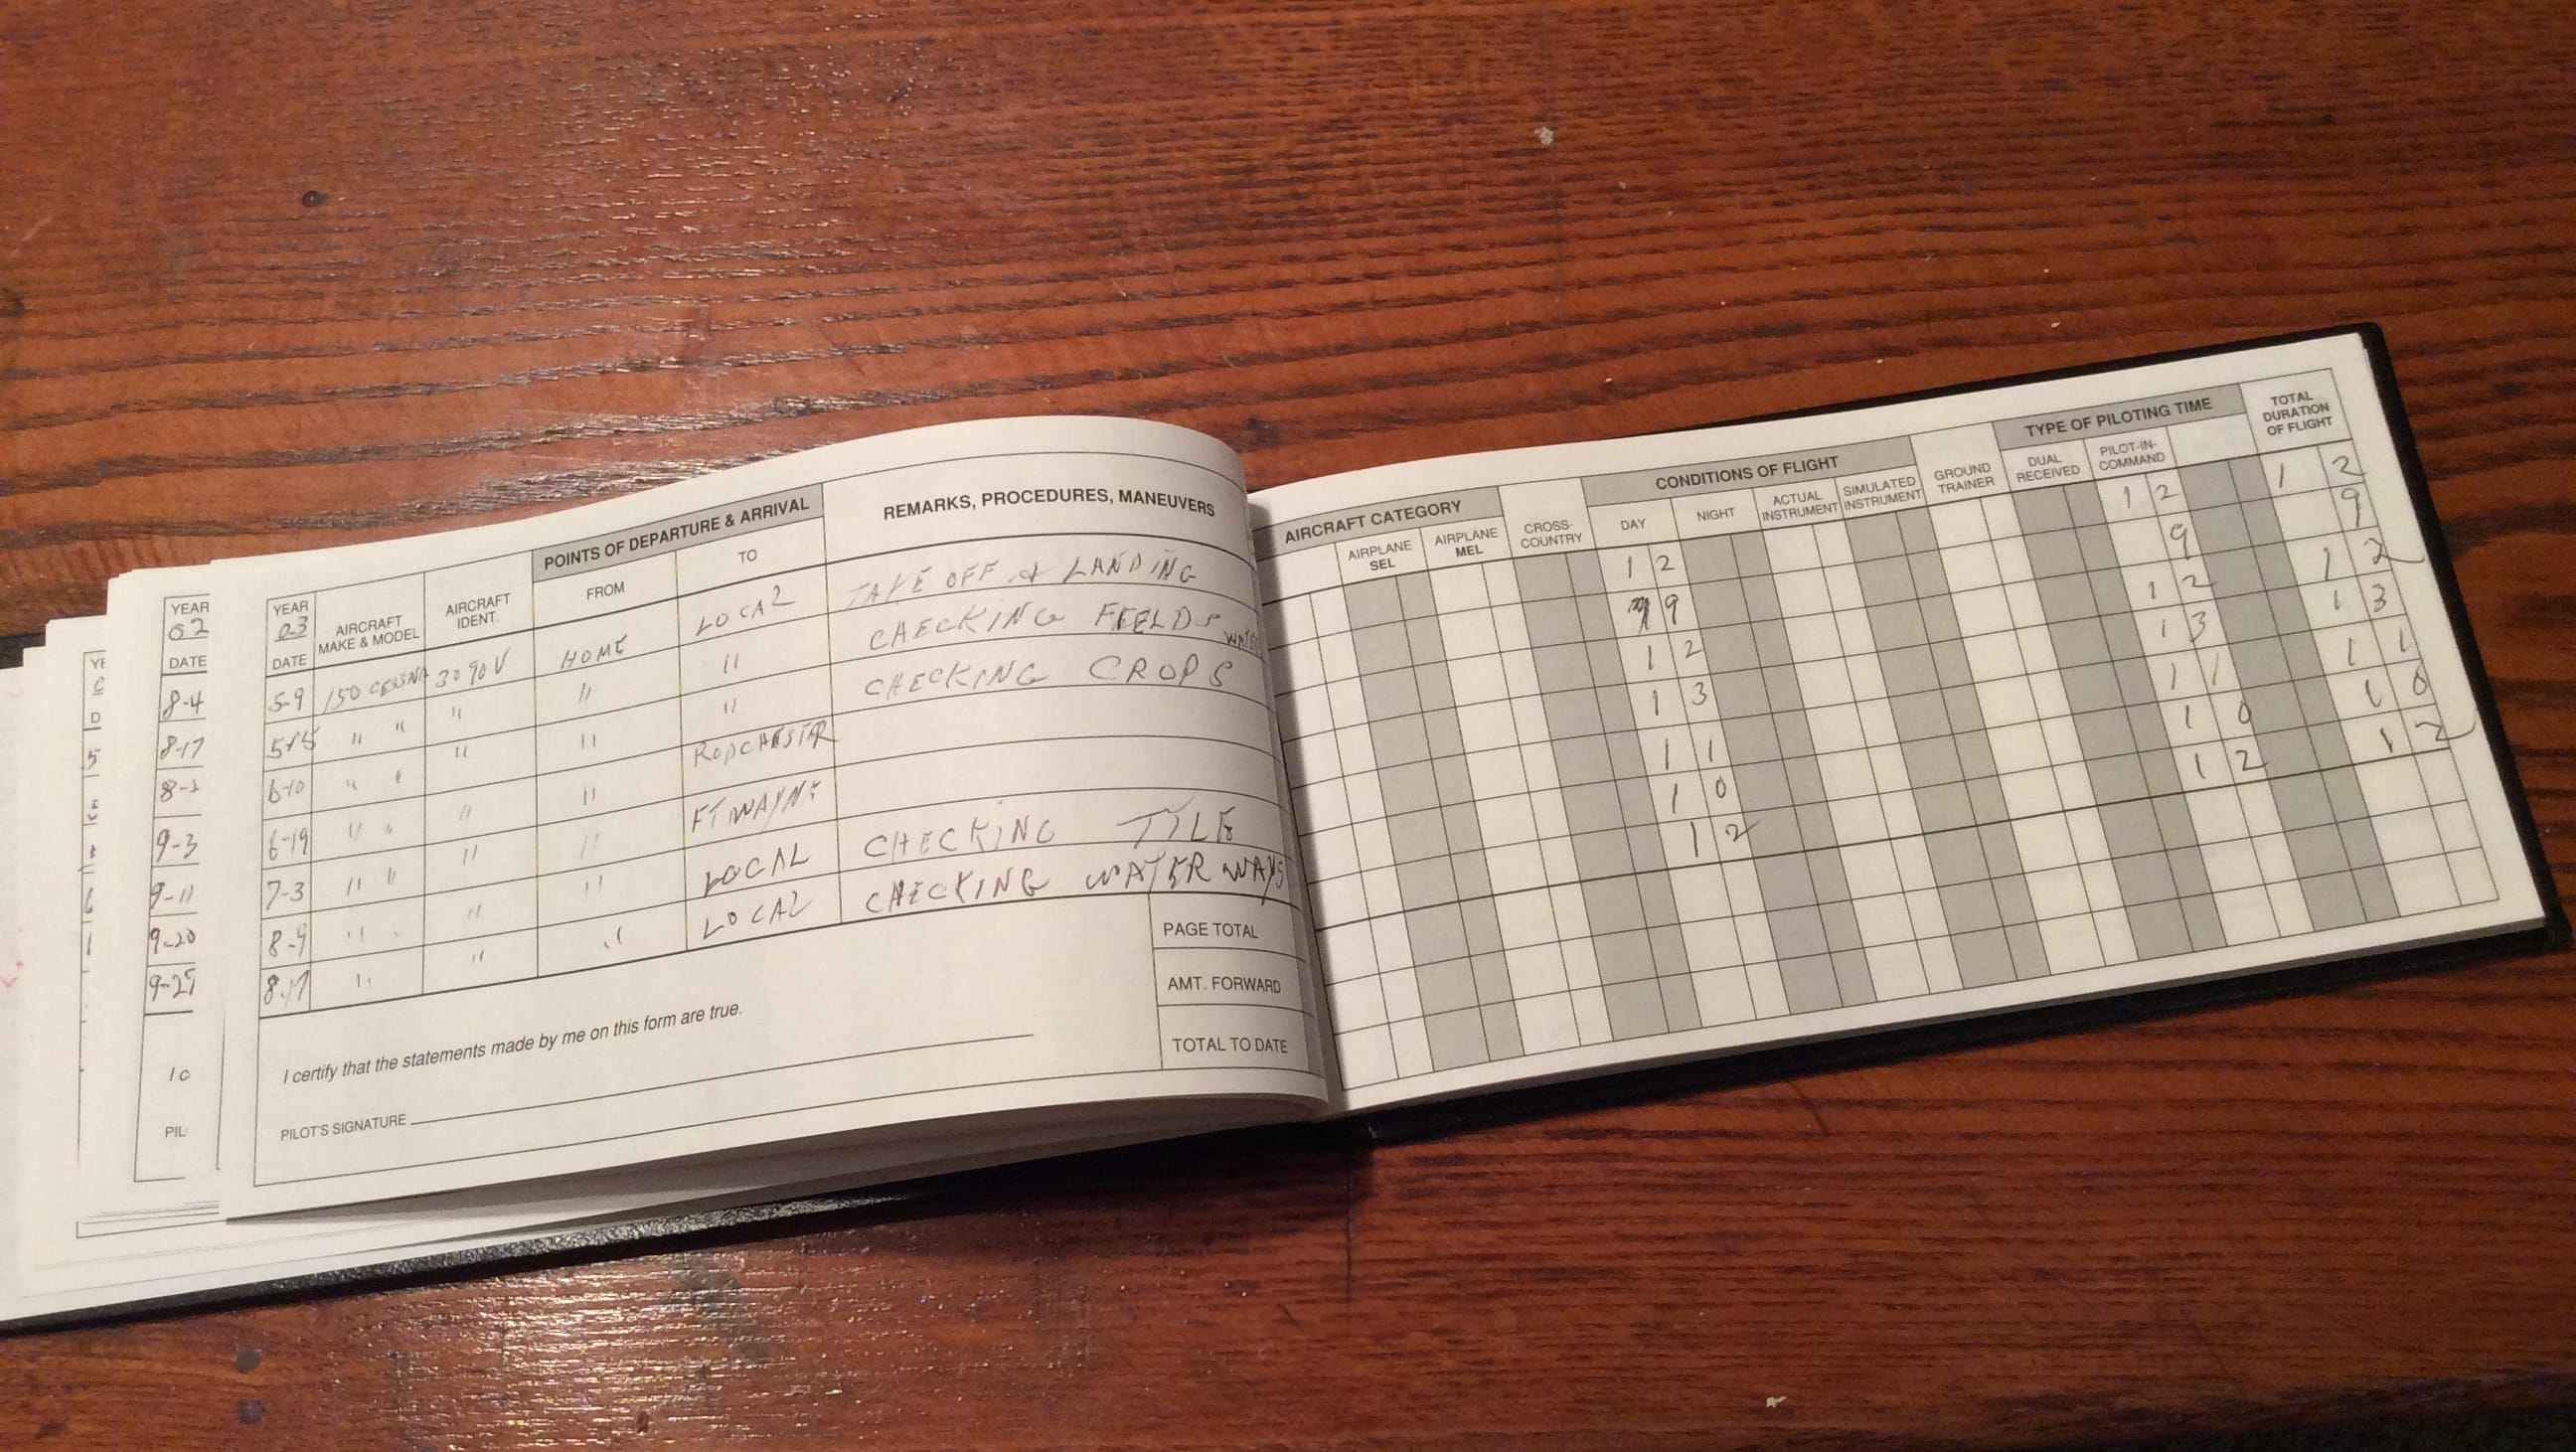 YEAR
02
DATE
8-4
8-17
9-3
9-11
9-20
PIL
YEAR 03 AIRCRAFT MAKE & MODEL AIRCRAFT IDENT. POINTS OF DEPARTURE & ARRIVAL REMARKS, PROCEDURES, MANEUVERS
DATE FROM TO
5-9 150 CESSNA 3090V HOME LOCAL TAKE OFF & LANDING
5-15 " " " " " CHECKING FIELDS WATER
6-10 " " " " " CHECKING CROPS
6-19 " " " " RODCHESTER
7-3 " " " " FT WAYNE
8-9 " " " LOCAL CHECKING TILE
8-17 " " " LOCAL CHECKING WATER WAYS
I certify that the statements made by me on this form are true.
PILOT'S SIGNATURE
PAGE TOTAL
AMT. FORWARD
TOTAL TO DATE
AIRCRAFT CATEGORY CONDITIONS OF FLIGHT TYPE OF PILOTING TIME TOTAL DURATION OF FLIGHT
AIRPLANE SEL AIRPLANE MEL CROSS-COUNTRY DAY NIGHT ACTUAL INSTRUMENT SIMULATED INSTRUMENT GROUND TRAINER DUAL RECEIVED PILOT-IN-COMMAND
1 2 1 2 1 2
9 9 9
1 2 1 2 1 2
1 3 1 3 1 3
1 1 1 1 1 1
1 0 1 0 1 0
1 2 1 2 1 2